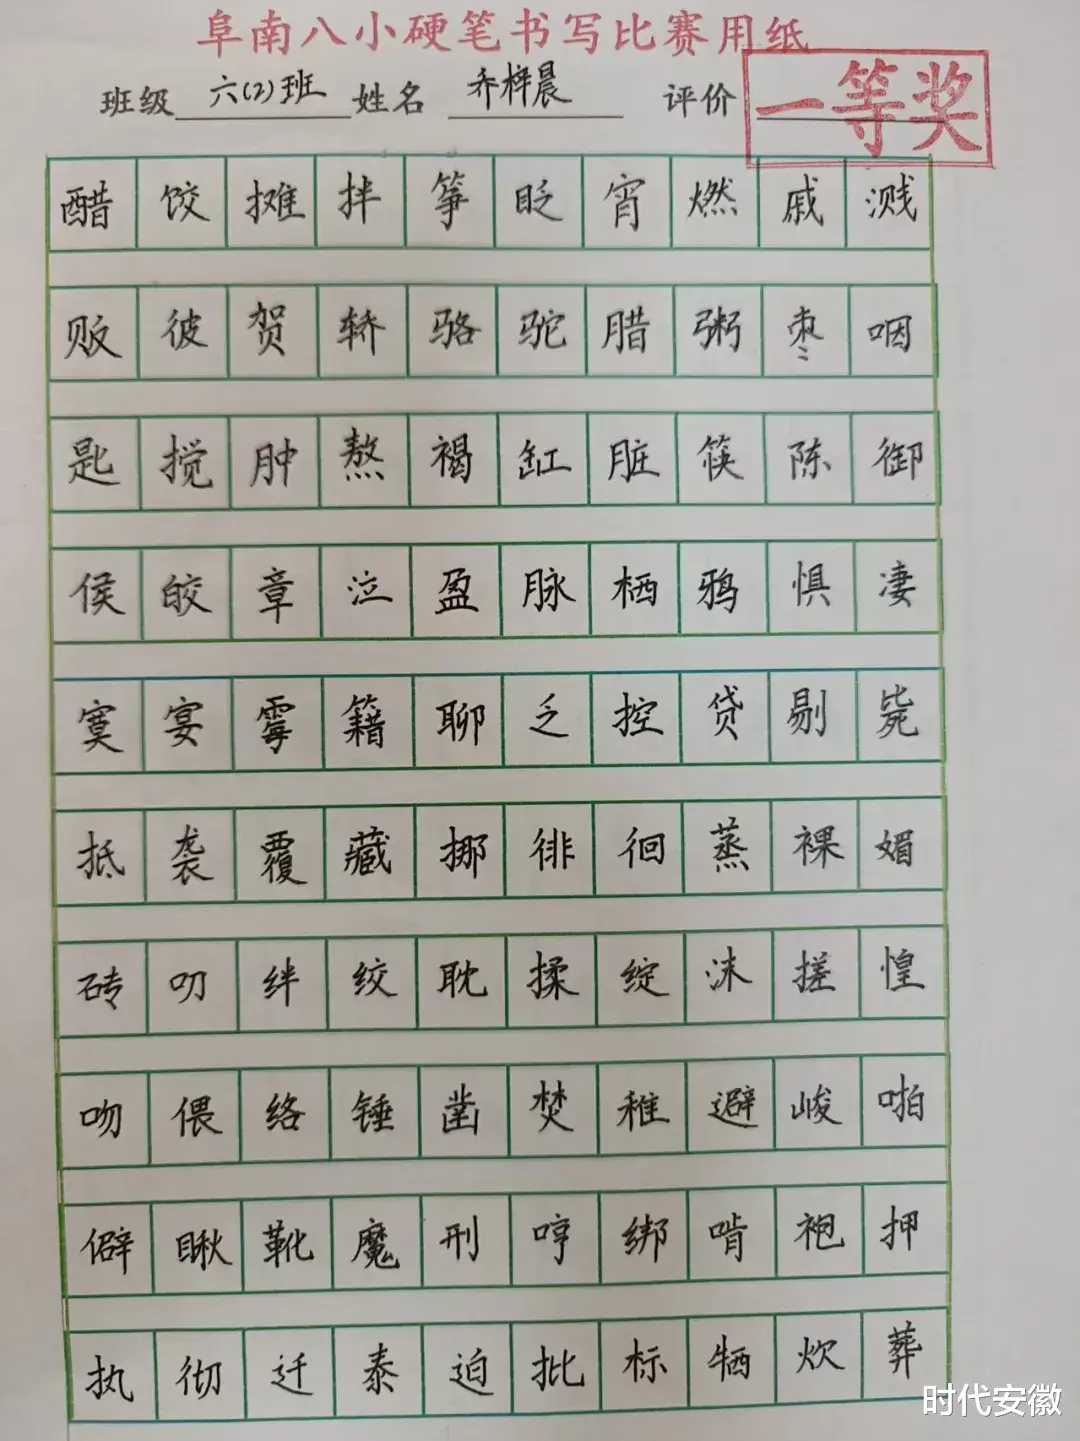 阜南八小硬笔书写比赛用纸
班级 六(2)班 姓名 乔梓晨 评价 一等奖
醋 饺 摊 拌 筝 眨 宵 燃 戚 溅
贩 彼 贺 轿 骆 驼 腊 粥 枣 咽
匙 搅 肿 熬 褐 缸 脏 筷 陈 御
侯 皎 章 泣 盈 脉 栖 鸦 惧 凄
寞 宴 霉 籍 聊 乏 控 贷 剔 毙
抵 袭 覆 藏 挪 徘 徊 蒸 裸 媚
砖 叨 绊 绞 耽 揉 绽 沫 搓 惶
吻 偎 络 锤 凿 焚 稚 避 峻 啪
僻 瞅 靴 魔 刑 哼 绑 啃 袍 押
执 彻 迁 泰 迫 批 标 牺 炊 葬
时代安徽